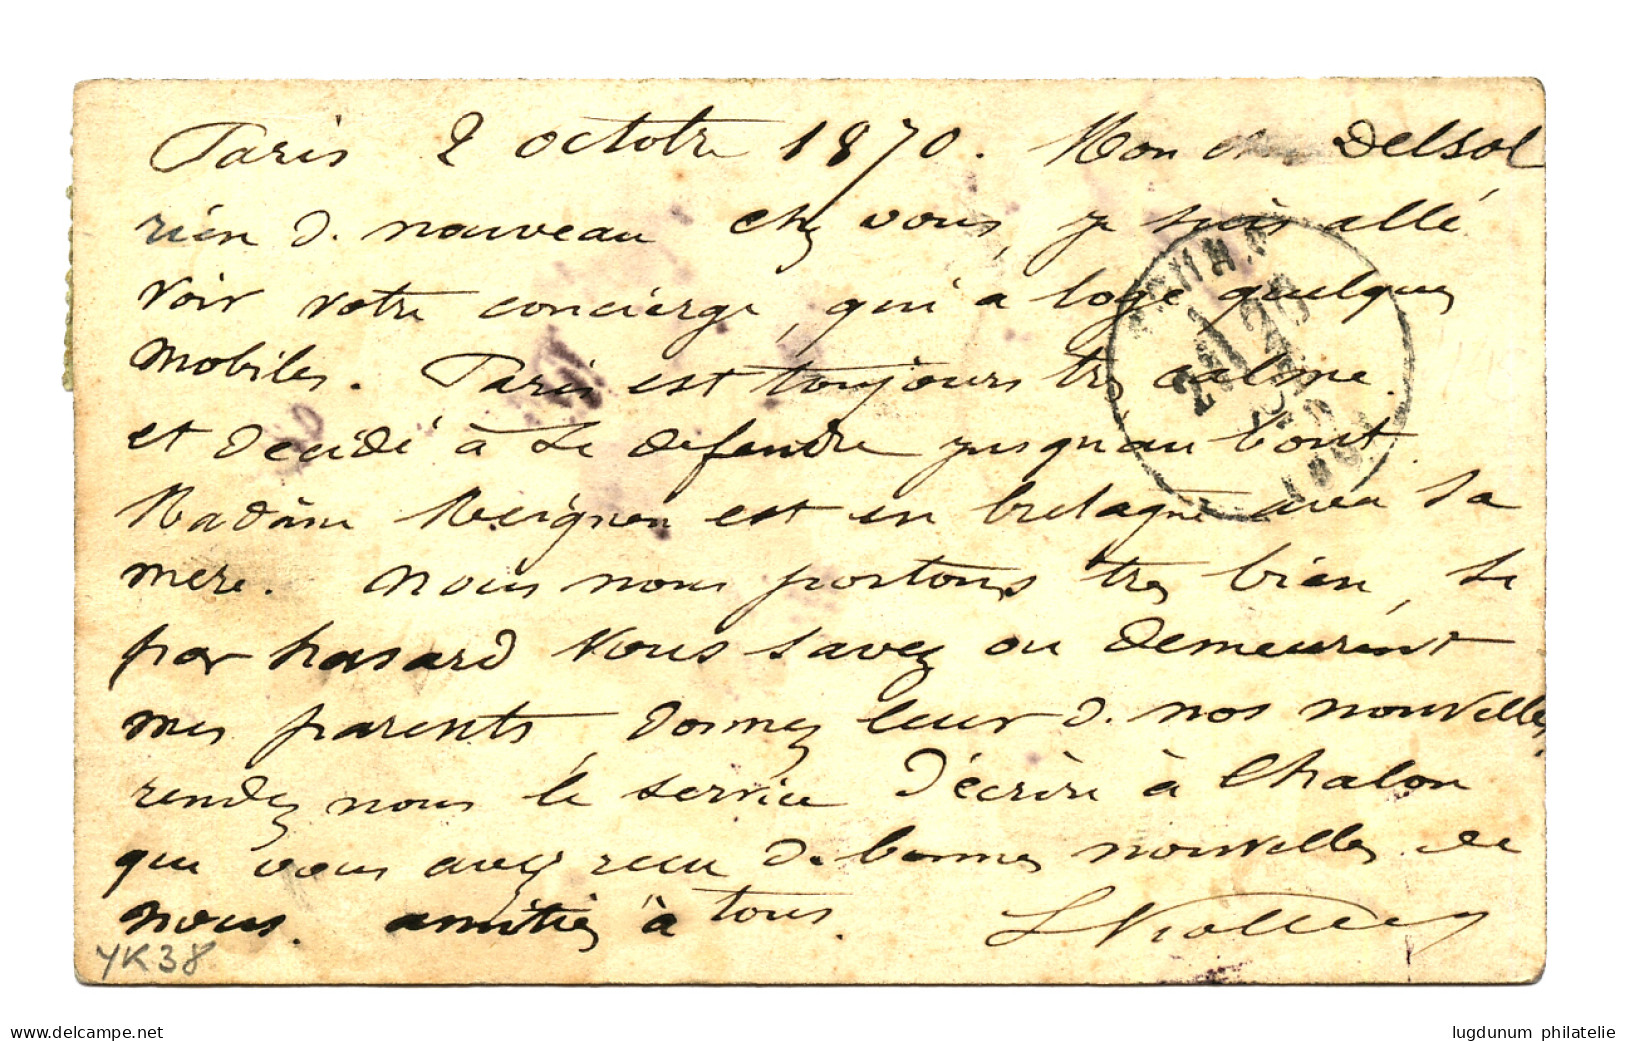 Paris 2 octobre 1870. Mon cher Delsol
rien de nouveau chez vous, je suis allé
voir votre concierge, qui a logé quelques
mobiles. Paris est toujours très calme.
et décidé à se defendre jusqu'au bout.
Madame est en bretagne avec sa
mere. Nous nous portons tres bien, si
par hasard vous savez ou demeurent
mes parents, donnez leur de nos nouvelles,
rendez nous le service d'écrire à Chalon
que vous avez recu de bonnes nouvelles de
nous. amitiés à tous.
YK38
delcampe.net
lugdunum philatelie